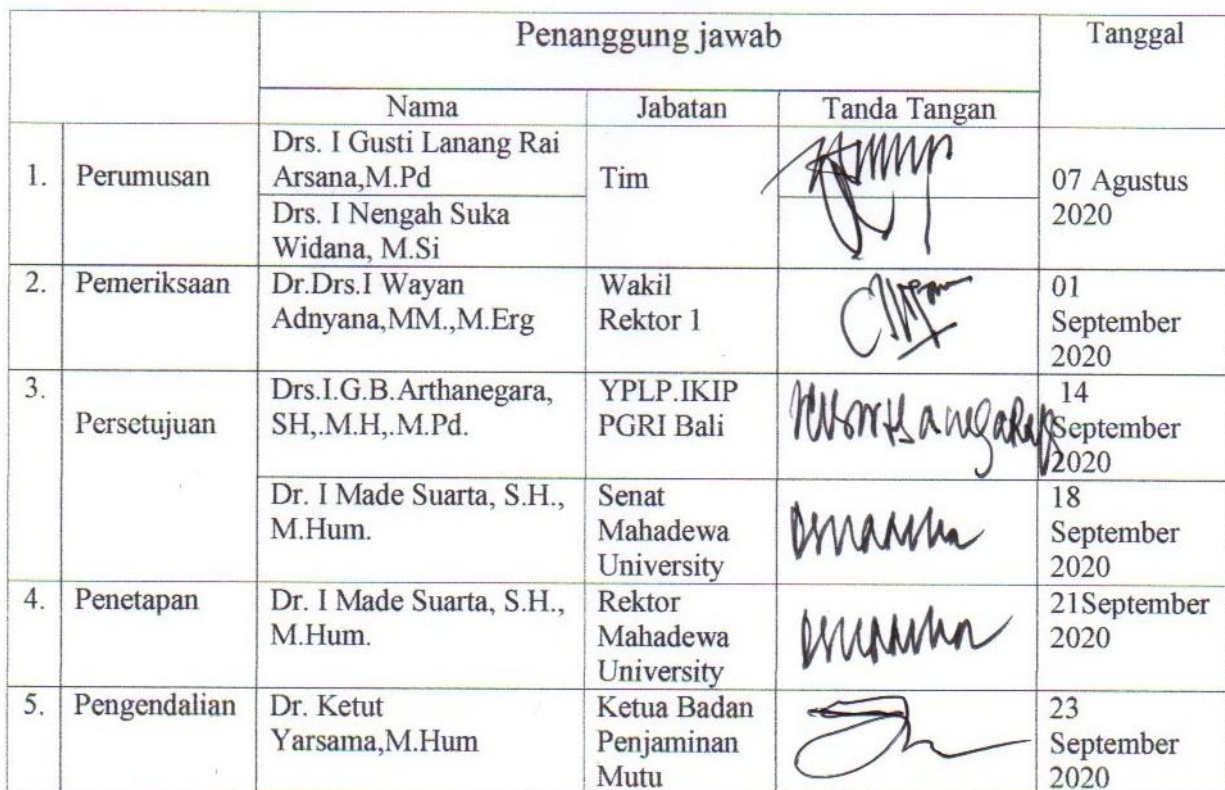 Penanggung jawab Tanggal
Nama Jabatan Tanda Tangan
1. Perumusan
Drs. I Gusti Lanang Rai
Arsana,M.Pd
Drs. I Nengah Suka
Widana, M.Si
Tim
07 Agustus
2020
2. Pemeriksaan
Dr.Drs.I Wayan
Adnyana,MM.,M.Erg
Wakil
Rektor 1
01
September
2020
3.
Persetujuan
Drs.I.G.B.Arthanegara,
SH,.M.H,.M.Pd.
YPLP.IKIP
PGRI Bali
14
September
2020
Dr. I Made Suarta, S.H.,
M.Hum.
Senat
Mahadewa
University
18
September
2020
4. Penetapan
Dr. I Made Suarta, S.H.,
M.Hum.
Rektor
Mahadewa
University
21September
2020
5. Pengendalian
Dr. Ketut
Yarsama,M.Hum
Ketua Badan
Penjaminan
Mutu
23
September
2020